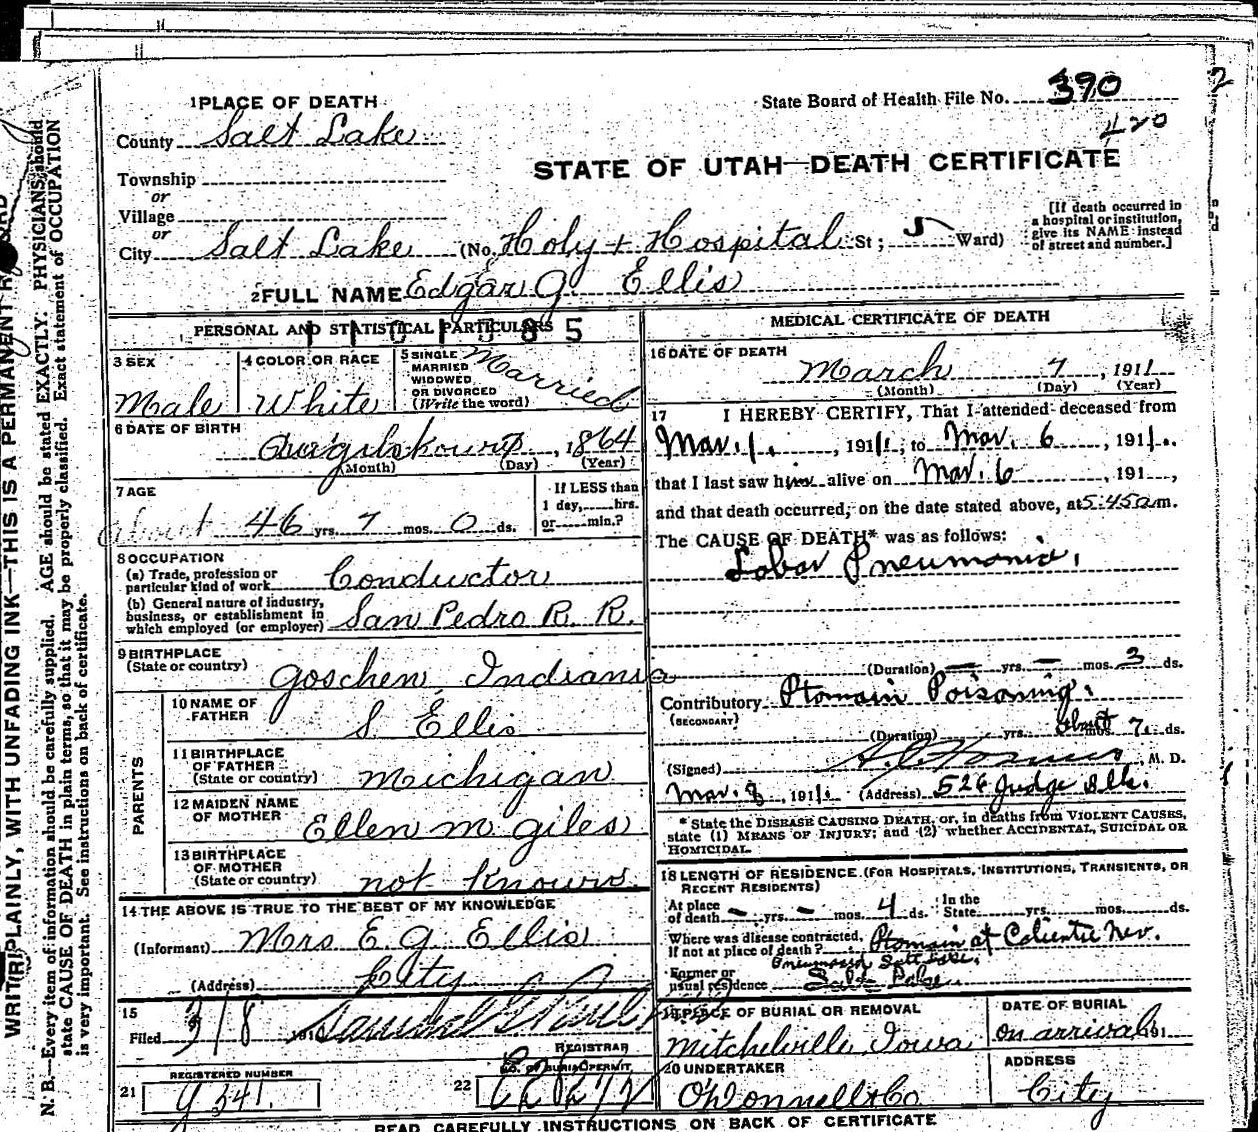 1 PLACE OF DEATH
State Board of Health File No. 390
420
County Salt Lake
STATE OF UTAH—DEATH CERTIFICATE
Township
or
Village
or
City Salt Lake (No. Holy + Hospital St; 5 Ward)
[If death occurred in a hospital or institution, give its NAME instead of street and number.]
2 FULL NAME Edgar G Ellis
PERSONAL AND STATISTICAL PARTICULARS
1101585
3 SEX Male
4 COLOR OR RACE White
5 SINGLE MARRIED WIDOWED OR DIVORCED (Write the word) Married
6 DATE OF BIRTH 1864
(Month) (Day) (Year)
7 AGE about 46 yrs. 7 mos. 0 ds.
If LESS than 1 day, hrs. or min.?
8 OCCUPATION
(a) Trade, profession or particular kind of work Conductor
(b) General nature of industry, business, or establishment in which employed (or employer) San Pedro R. R.
9 BIRTHPLACE (State or country) Goschen, Indiania
PARENTS
10 NAME OF FATHER S Ellis
11 BIRTHPLACE OF FATHER (State or country) Michigan
12 MAIDEN NAME OF MOTHER Ellen M Giles
13 BIRTHPLACE OF MOTHER (State or country) not known
14 THE ABOVE IS TRUE TO THE BEST OF MY KNOWLEDGE
(Informant) Mrs E. G. Ellis
(Address) City
15
Filed 3/8 191
REGISTRAR
REGISTERED NUMBER
21 9341.
22 NO. OF BURIAL PERMIT
MEDICAL CERTIFICATE OF DEATH
16 DATE OF DEATH March 7, 1911
(Month) (Day) (Year)
17 I HEREBY CERTIFY, That I attended deceased from
Mar. 1, 1911, to Mar. 6, 1911.
that I last saw him alive on Mar. 6, 191 ,
and that death occurred, on the date stated above, at 5:45 a m.
The CAUSE OF DEATH* was as follows:
Lobar Pneumonia.
(Duration) — yrs. — mos. 3 ds.
Contributory Ptomain Poisoning.
(SECONDARY)
(Duration) yrs. about mos. 7 ds.
(Signed) M. D.
Mar. 8, 1911. (Address) 526 Judge Blk.
* State the DISEASE CAUSING DEATH, or, in deaths from VIOLENT CAUSES, state (1) MEANS OF INJURY; and (2) whether ACCIDENTAL, SUICIDAL OR HOMICIDAL.
18 LENGTH OF RESIDENCE (FOR HOSPITALS, INSTITUTIONS, TRANSIENTS, OR RECENT RESIDENTS)
At place of death — yrs. — mos. 4 ds. In the State yrs. mos. ds.
Where was disease contracted, If not at place of death? Ptomain at Calienti Nev.
Pneumonia Salt Lake.
Former or usual residence Salt Lake
19 PLACE OF BURIAL OR REMOVAL Mitchelville Iowa
DATE OF BURIAL on arrival 191
20 UNDERTAKER O'Donnell & Co
ADDRESS City
READ CAREFULLY INSTRUCTIONS ON BACK OF CERTIFICATE
WRITE PLAINLY, WITH UNFADING INK—THIS IS A PERMANENT RECORD
N. B.—Every item of information should be carefully supplied. AGE should be stated EXACTLY. PHYSICIANS should
state CAUSE OF DEATH in plain terms, so that it may be properly classified. Exact statement of OCCUPATION
is very important. See instructions on back of certificate.